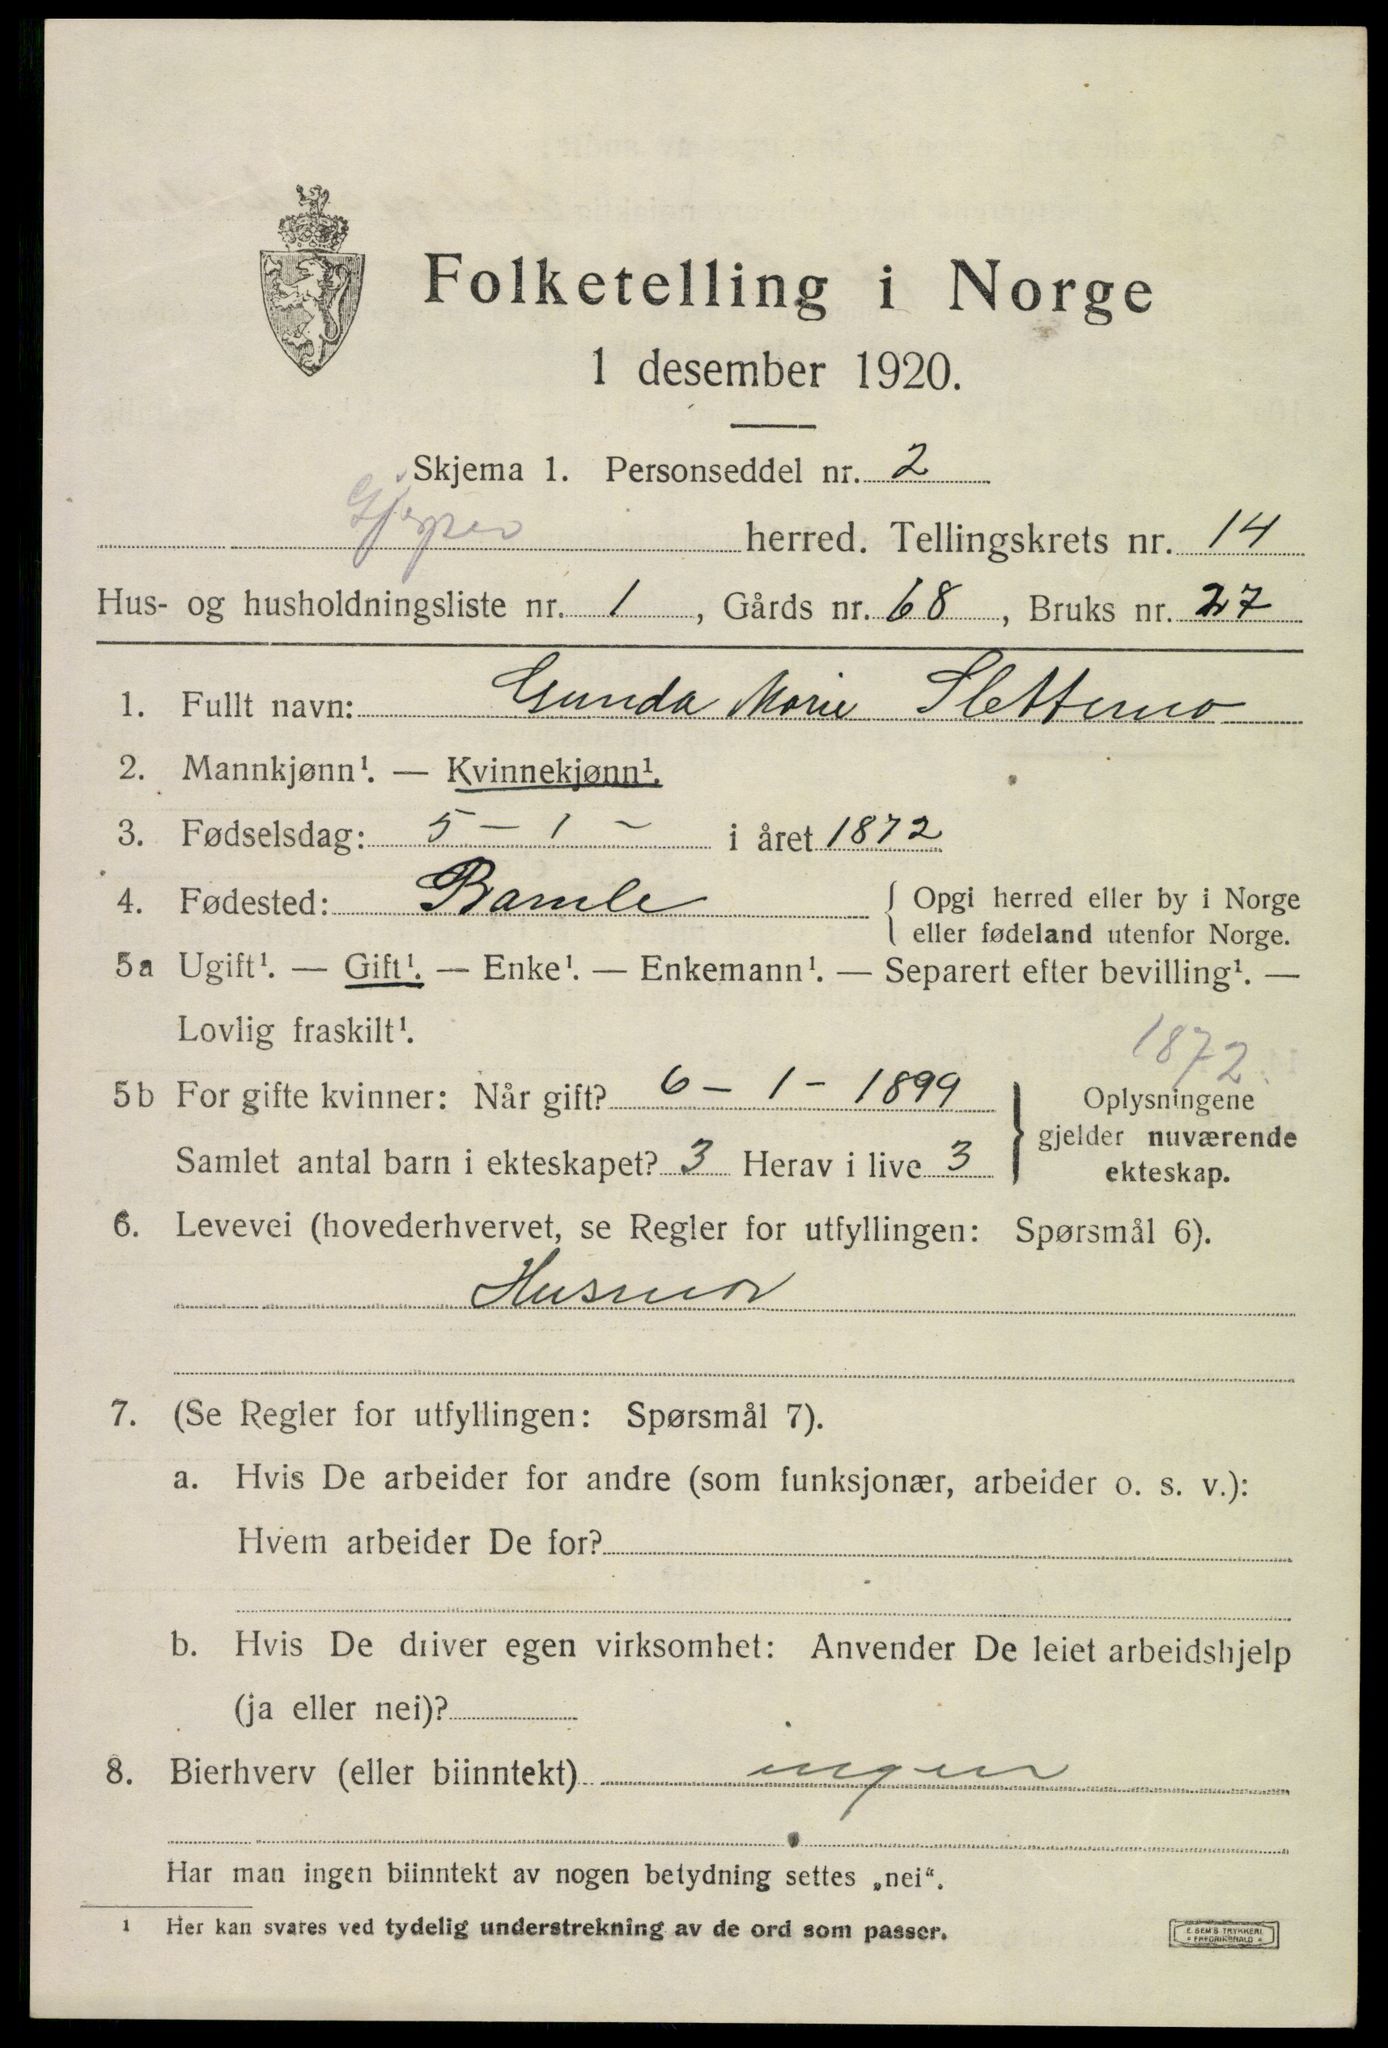 Folketelling i Norge
1 desember 1920.
Skjema 1. Personseddel nr. 2
Gjerpen herred. Tellingskrets nr. 14
Hus- og husholdningsliste nr. 1, Gårds nr. 68, Bruks nr. 27
1. Fullt navn: Gunda Marie Slettemo
2. Mannkjønn¹. — Kvinnekjønn¹.
3. Fødselsdag: 5 – 1 – i året 1872
4. Fødested: Bamle { Opgi herred eller by i Norge
eller fødeland utenfor Norge.
5a Ugift¹. — Gift¹. — Enke¹. — Enkemann¹. — Separert efter bevilling¹. —
Lovlig fraskilt¹.
1872
5b For gifte kvinner: Når gift? 6 – 1 – 1899
Samlet antal barn i ekteskapet? 3 Herav i live 3
} Oplysningene
gjelder nuværende
ekteskap.
6. Levevei (hovederhvervet, se Regler for utfyllingen: Spørsmål 6).
Husmor
7. (Se Regler for utfyllingen: Spørsmål 7).
a. Hvis De arbeider for andre (som funksjonær, arbeider o. s. v.):
Hvem arbeider De for?
b. Hvis De driver egen virksomhet: Anvender De leiet arbeidshjelp
(ja eller nei)?
8. Bierhverv (eller biinntekt) ingen
Har man ingen biinntekt av nogen betydning settes „nei“.
1 Her kan svares ved tydelig understrekning av de ord som passer.
E. SEM'S TRYKKERI
FREDRIKSHALD